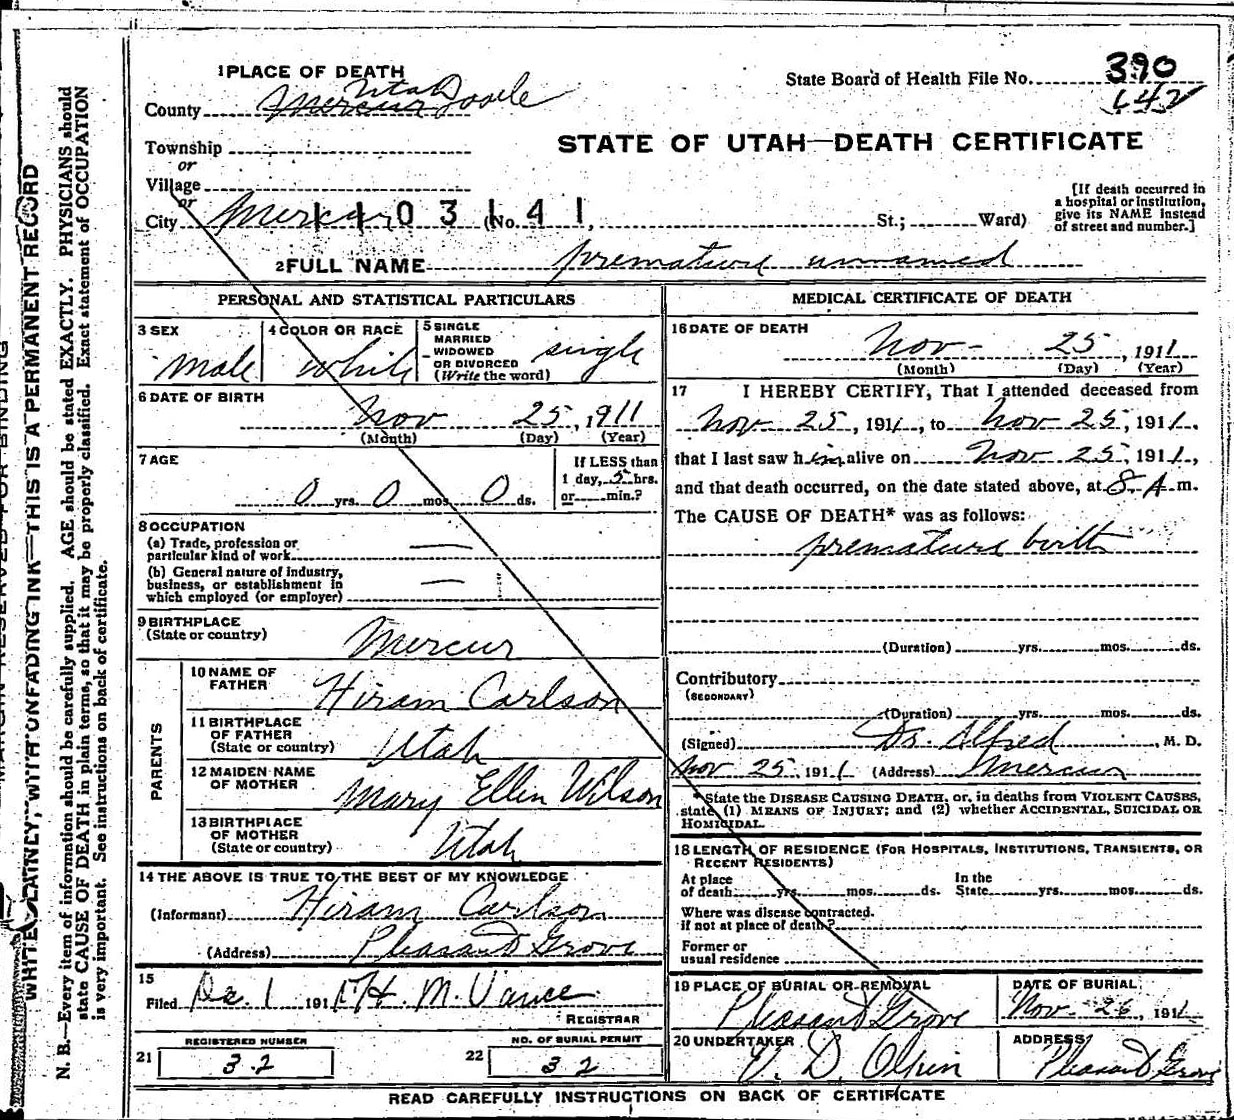 1 PLACE OF DEATH
State Board of Health File No. 390
642
Utah
County Mercur Tooele
STATE OF UTAH—DEATH CERTIFICATE
Township
or
Village
or
City Mercur (No. St.; Ward)
1103141
[If death occurred in a hospital or institution, give its NAME instead of street and number.]
2 FULL NAME premature unnamed
PERSONAL AND STATISTICAL PARTICULARS
3 SEX male
4 COLOR OR RACE white
5 SINGLE MARRIED WIDOWED OR DIVORCED (Write the word) single
6 DATE OF BIRTH
Nov 25, 1911
(Month) (Day) (Year)
7 AGE
0 yrs. 0 mos. 0 ds.
If LESS than 1 day, 5 hrs. or min.?
8 OCCUPATION
(a) Trade, profession or particular kind of work —
(b) General nature of industry, business, or establishment in which employed (or employer) —
9 BIRTHPLACE
(State or country) Mercur
PARENTS
10 NAME OF FATHER Hiram Carlson
11 BIRTHPLACE OF FATHER (State or country) Utah
12 MAIDEN NAME OF MOTHER Mary Ellen Wilson
13 BIRTHPLACE OF MOTHER (State or country) Utah
14 THE ABOVE IS TRUE TO THE BEST OF MY KNOWLEDGE
(Informant) Hiram Carlson
(Address) Pleasant Grove
15
Filed De. 1 191 H. M. Vance
REGISTRAR
21 REGISTERED NUMBER 32
22 NO. OF BURIAL PERMIT 32
MEDICAL CERTIFICATE OF DEATH
16 DATE OF DEATH
Nov- 25, 1911
(Month) (Day) (Year)
17 I HEREBY CERTIFY, That I attended deceased from
Nov 25, 1911, to Nov 25, 1911,
that I last saw him alive on Nov 25, 1911,
and that death occurred, on the date stated above, at 8 A m.
The CAUSE OF DEATH* was as follows:
premature birth
(Duration) yrs. mos. ds.
Contributory
(SECONDARY)
(Duration) yrs. mos. ds.
(Signed) Dr. Alfred, M. D.
Nov 25, 1911 (Address) Mercur
*State the DISEASE CAUSING DEATH, or, in deaths from VIOLENT CAUSES,
state (1) MEANS OF INJURY; and (2) whether ACCIDENTAL, SUICIDAL OR
HOMICIDAL.
18 LENGTH OF RESIDENCE (FOR HOSPITALS, INSTITUTIONS, TRANSIENTS, OR
RECENT RESIDENTS)
At place of death yrs. mos. ds. In the State yrs. mos. ds.
Where was disease contracted.
if not at place of death?
Former or
usual residence
19 PLACE OF BURIAL OR REMOVAL Pleasant Grove
DATE OF BURIAL Nov. 26, 1911
20 UNDERTAKER D. Olpin
ADDRESS Pleasant Grove
READ CAREFULLY INSTRUCTIONS ON BACK OF CERTIFICATE
MARGIN RESERVED FOR BINDING
WRITE PLAINLY, WITH UNFADING INK—THIS IS A PERMANENT RECORD
N. B.—Every item of information should be carefully supplied. AGE should be stated EXACTLY. PHYSICIANS should
state CAUSE OF DEATH in plain terms, so that it may be properly classified. Exact statement of OCCUPATION
is very important. See instructions on back of certificate.